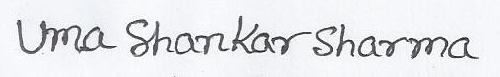 Uma Shankar Sharma